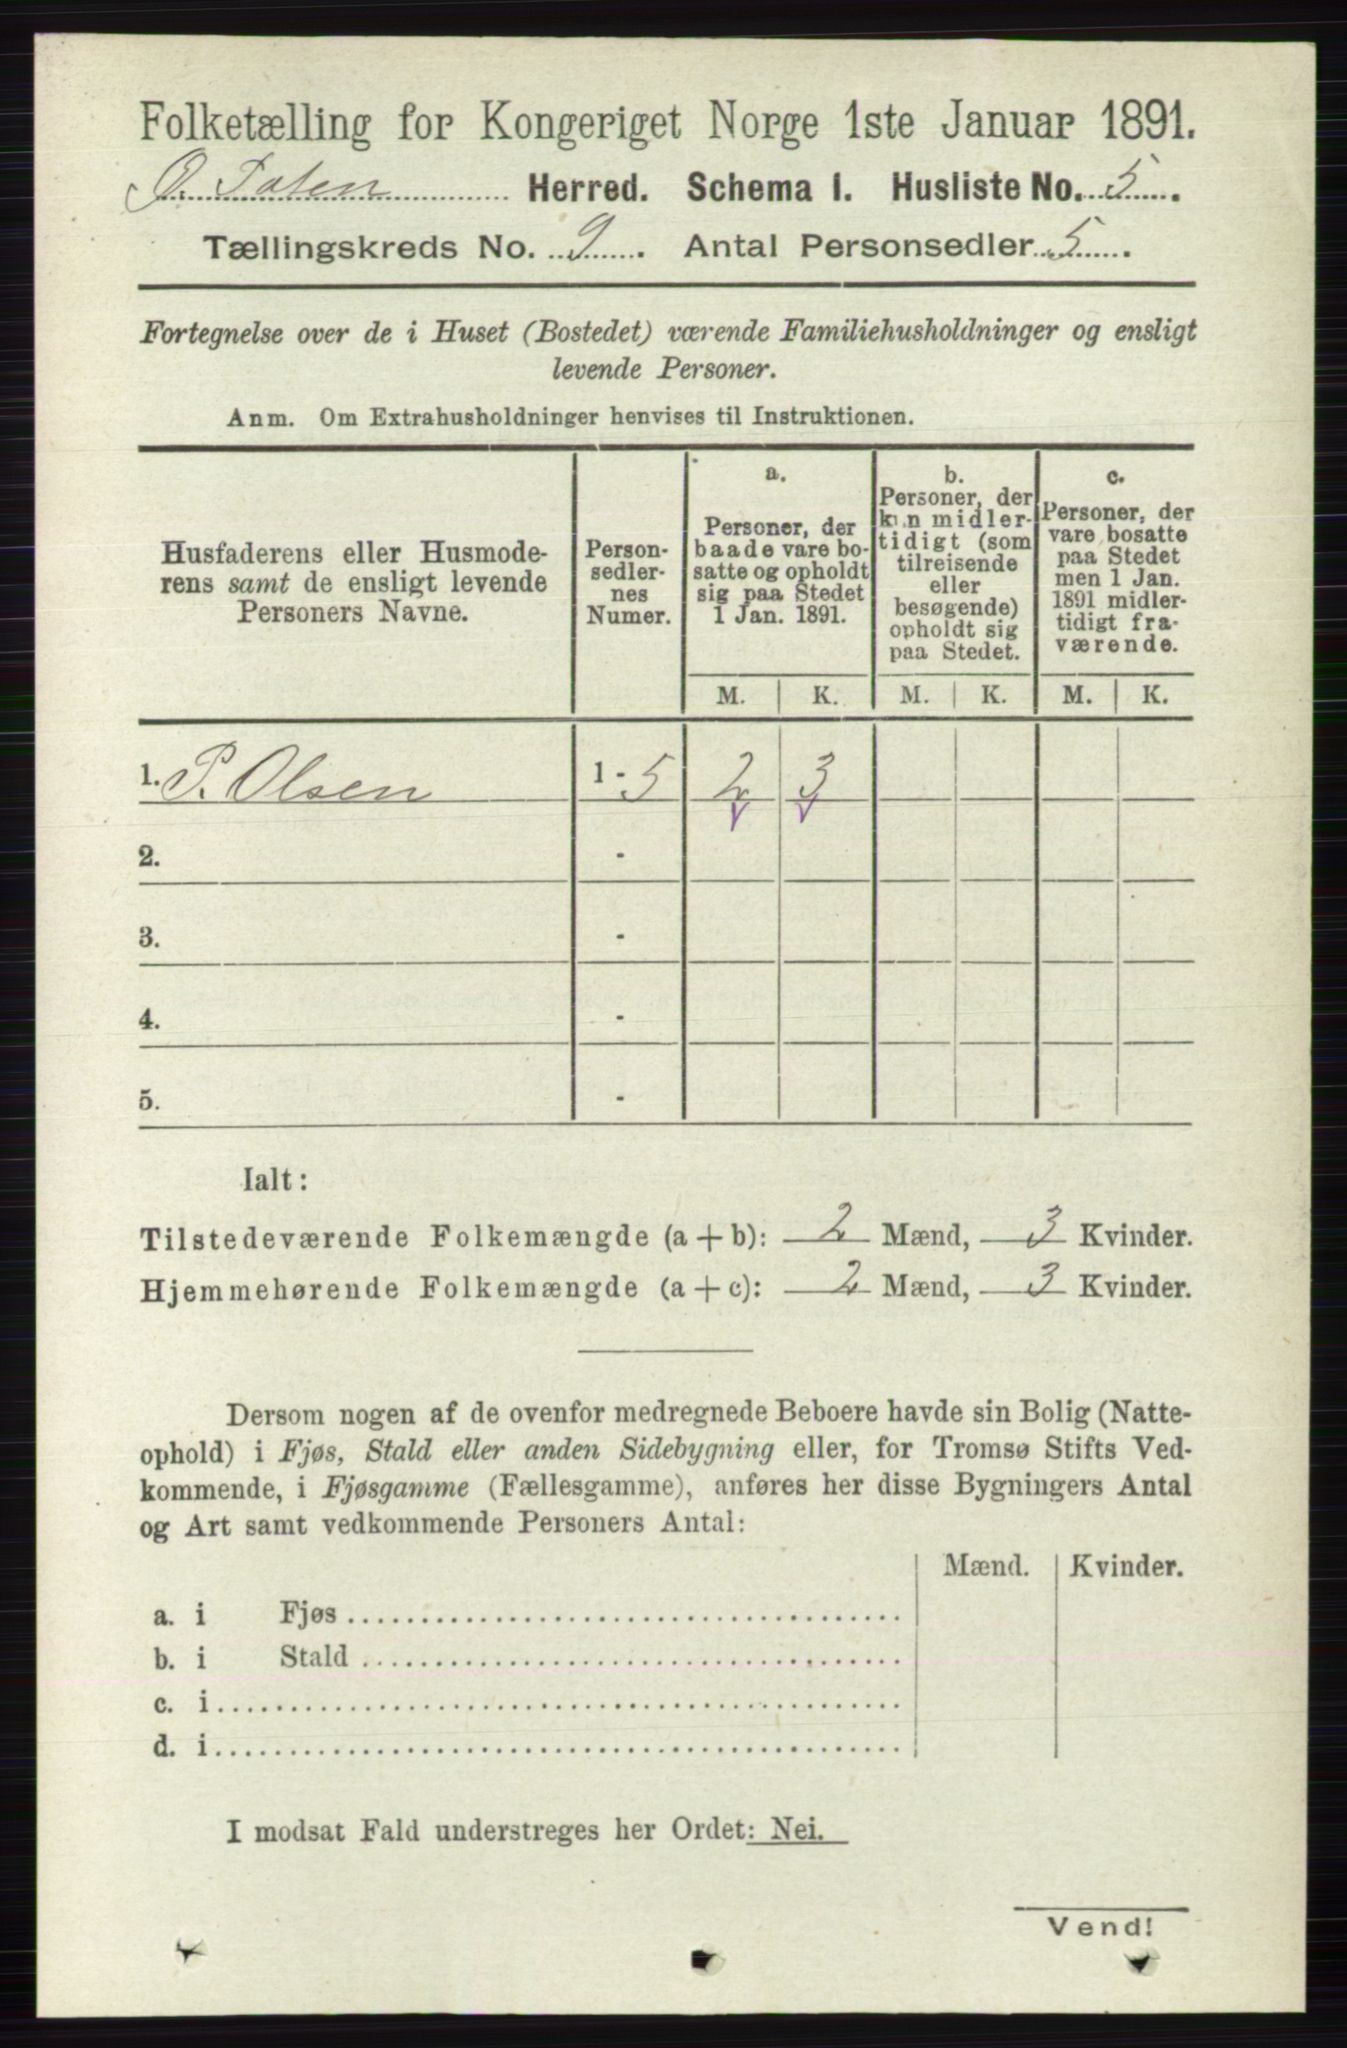 Folketælling for Kongeriget Norge 1ste Januar 1891.
Ø. Toten Herred. Schema I. Husliste No. 5.
Tællingskreds No. 9. Antal Personsedler 5.
Fortegnelse over de i Huset (Bostedet) værende Familiehusholdninger og ensligt
levende Personer.
Anm. Om Extrahusholdninger henvises til Instruktionen.
Husfaderens eller Husmode-
rens samt de ensligt levende
Personers Navne.
Person-
sedler-
nes
Numer.
a.
Personer, der
baade vare bo-
satte og opholdt
sig paa Stedet
1 Jan. 1891.
b.
Personer, der
kun midler-
tidigt (som
tilreisende
eller
besøgende)
opholdt sig
paa Stedet.
c.
Personer, der
vare bosatte
paa Stedet
men 1 Jan.
1891 midler-
tidigt fra-
værende.
M. K. M. K. M. K.
1. P. Olsen 1 - 5 2 3
2. -
3. -
4. -
5. -
Ialt:
Tilstedeværende Folkemængde (a + b): 2 Mænd, 3 Kvinder.
Hjemmehørende Folkemængde (a + c): 2 Mænd, 3 Kvinder.
Dersom nogen af de ovenfor medregnede Beboere havde sin Bolig (Natte-
ophold) i Fjøs, Stald eller anden Sidebygning eller, for Tromsø Stifts Ved-
kommende, i Fjøsgamme (Fællesgamme), anføres her disse Bygningers Antal
og Art samt vedkommende Personers Antal:
Mænd. Kvinder.
a. i Fjøs
b. i Stald
c. i
d. i
I modsat Fald understreges her Ordet: Nei.
Vend!